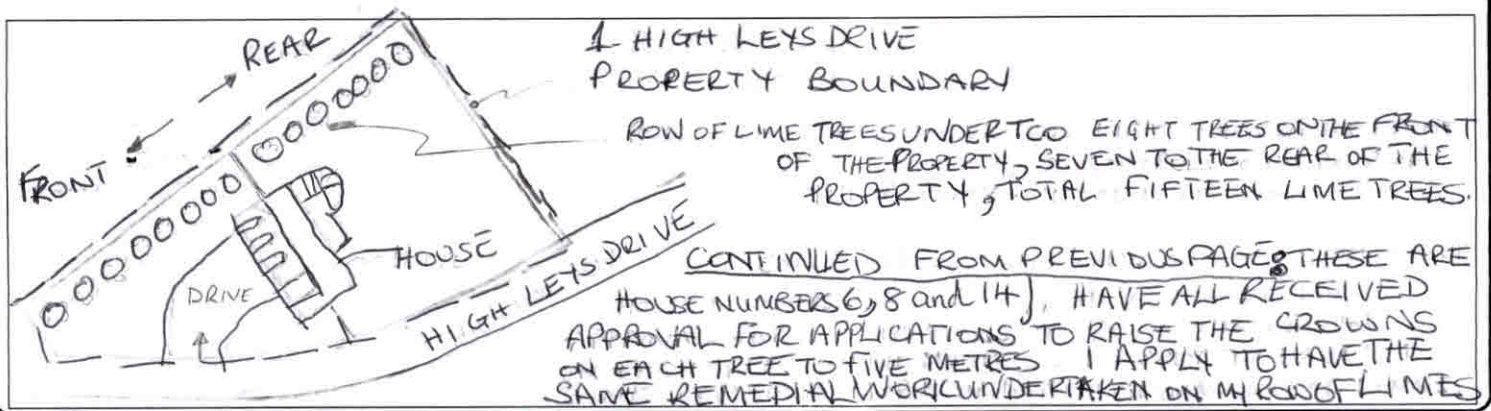 REAR
FRONT
1 HIGH LEYS DRIVE
PROPERTY BOUNDARY
ROW OF LIME TREES UNDER TCO EIGHT TREES ON THE FRONT
OF THE PROPERTY, SEVEN TO THE REAR OF THE
PROPERTY, TOTAL FIFTEEN LIME TREES.
HOUSE
DRIVE
HIGH LEYS DRIVE
CONTINUED FROM PREVIOUS PAGE: THESE ARE
HOUSE NUMBERS 6, 8 and 14). HAVE ALL RECEIVED
APPROVAL FOR APPLICATIONS TO RAISE THE CROWNS
ON EACH TREE TO FIVE METRES I APPLY TO HAVE THE
SAME REMEDIAL WORK UNDERTAKEN ON MY ROW OF LIMES